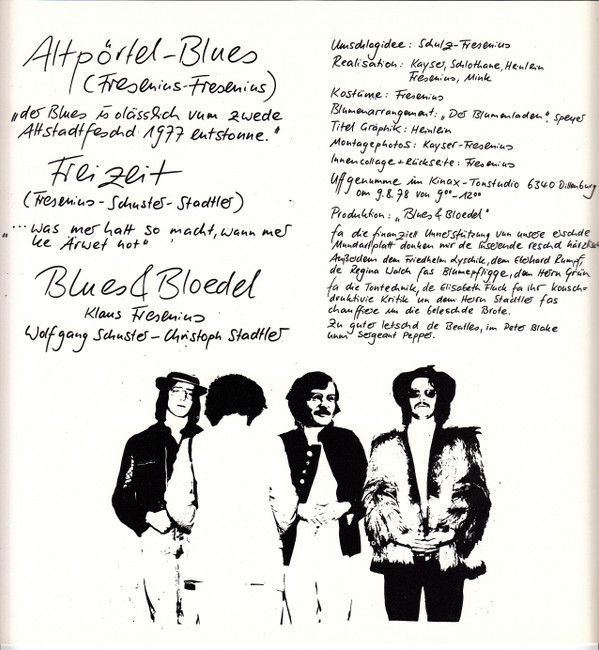 Altpörtel-Blues
(Fresenius-Fresenius)
„der Blues is olässlich vum zwede
Altstadtfeschd 1977 entstonne."
Freizeit
(Fresenius-Schuster-Stadtler)
„... was mer halt so macht, wann mer
ke Ärwet hot"
Blues & Bloedel
Klaus Fresenius
Wolfgang Schuster - Christoph Stadtler
Umschlagidee: Schulz-Fresenius
Realisation: Kayser, Schlothane, Heinlein
Fresenius, Mink
Kostüme: Fresenius
Blumenarrangement: „Der Blumenladen", Speyer
Titel Graphik: Heinlein
Montagephotos: Kayser-Fresenius
Innencollage + Rückseite: Fresenius
Uffgenumme im Kinax-Tonstudio 6340 Dillenburg
am 9.8.78 von 9⁰⁰-12⁰⁰
Produktion: „Blues & Bloedel"
fa die finanziell Unnerstützung vun unsere erschde
Mundartplatt donken mir de reschd härzlisch
Außerdem dem Friedhelm Zyschik, dem Ekhard Rumpf,
de Regina Walch fas Blumepfligge, dem Herrn Grün
fa die Tontechnik, de Elisabeth Fluck fa ihr konsch-
druktivie Kritik un dem Herrn Stadtler fas
chauffiere un die beleschde Brote.
Zu guter letschd de Beatles, im Peter Blake
unm Sergeant Pepper.